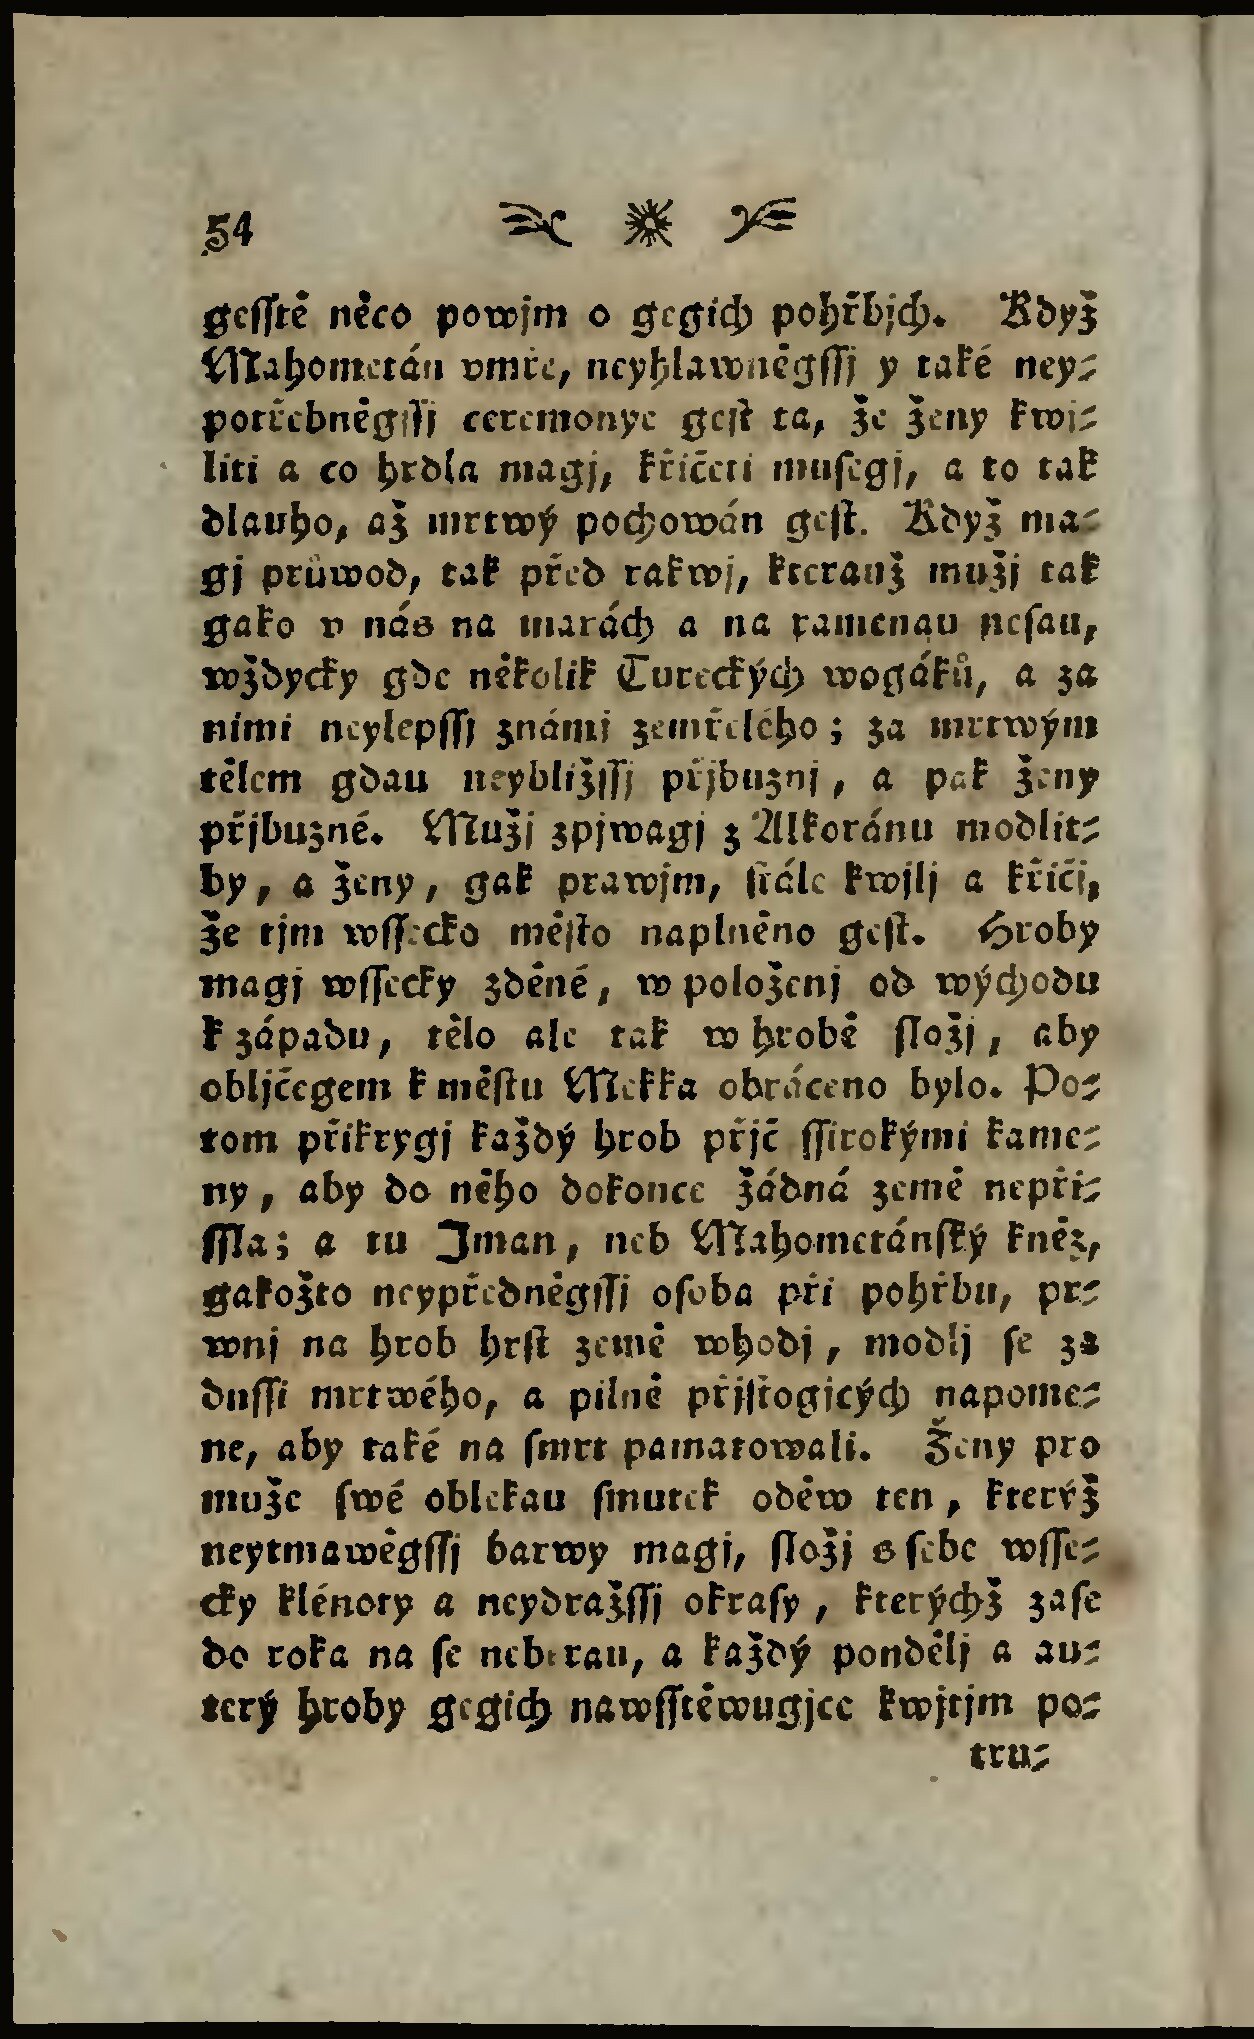 54
gesstě něco powjm o gegich pohřbjch. Když
Mahometán vmře, neyhlawněgssj y také ney-
potřebněgssj ceremonye gest ta, že ženy kwj-
liti a co hrdla magj, křičeti musegj, a to tak
dlauho, až mrtwý pochowán gest. Když ma-
gj průwod, tak před rakwj, kterauž mužj tak
gako v nás na marách a na ramenau nesau,
wždycky gde několik Tureckých wogáků, a za
nimi neylepssj známj zemřelého; za mrtwým
tělem gdau neybližssj přjbuznj, a pak ženy
přjbuzné. Mužj zpjwagj z Alkoránu modlit-
by, a ženy, gak prawjm, stále kwjlj a křičj,
že tjm wssecko město naplněno gest. Hroby
magj wssecky zděné, w položenj od wýchodu
k západu, tělo ale tak w hrobě složj, aby
obljčegem k městu Mekka obráceno bylo. Po-
tom přikrygj každý hrob přjč ssirokými kame-
ny, aby do něho dokonce žádná země nepři-
ssla; a tu Iman, neb Mahometánský kněz,
gakožto neypředněgssj osoba při pohřbu, pr-
wnj na hrob hrst země whodj, modlj se za
dussi mrtwého, a pilně přjstogjcých napome-
ne, aby také na smrt pamatowali. Ženy pro
muže swé oblekau smutek oděw ten, kterýž
neytmawěgssj barwy magj, složj s sebe wsse-
cky klénoty a neydražssj okrasy, kterýchž zase
do roka na se neberau, a každý pondělj a au-
terý hroby gegich nawsstěwugjce kwjtjm po-
tru-